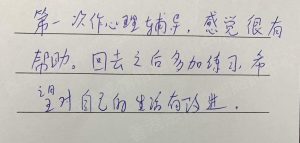 第一次作心理辅导，感觉很有
帮助。回去之后多加练习，希
望对自己的生活有改进．